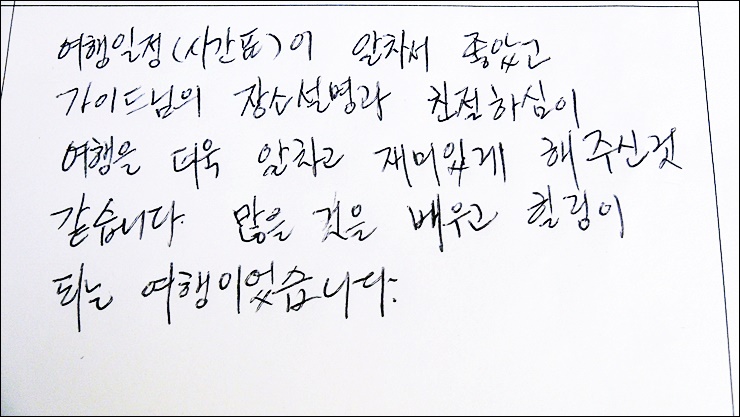 여행일정(시간표)이 알차서 좋았고
가이드님의 장소설명과 친절하심이
여행을 더욱 알차고 재미있게 해주신것
같습니다. 많을 것을 배우고 힐링이
되는 여행이었습니다.